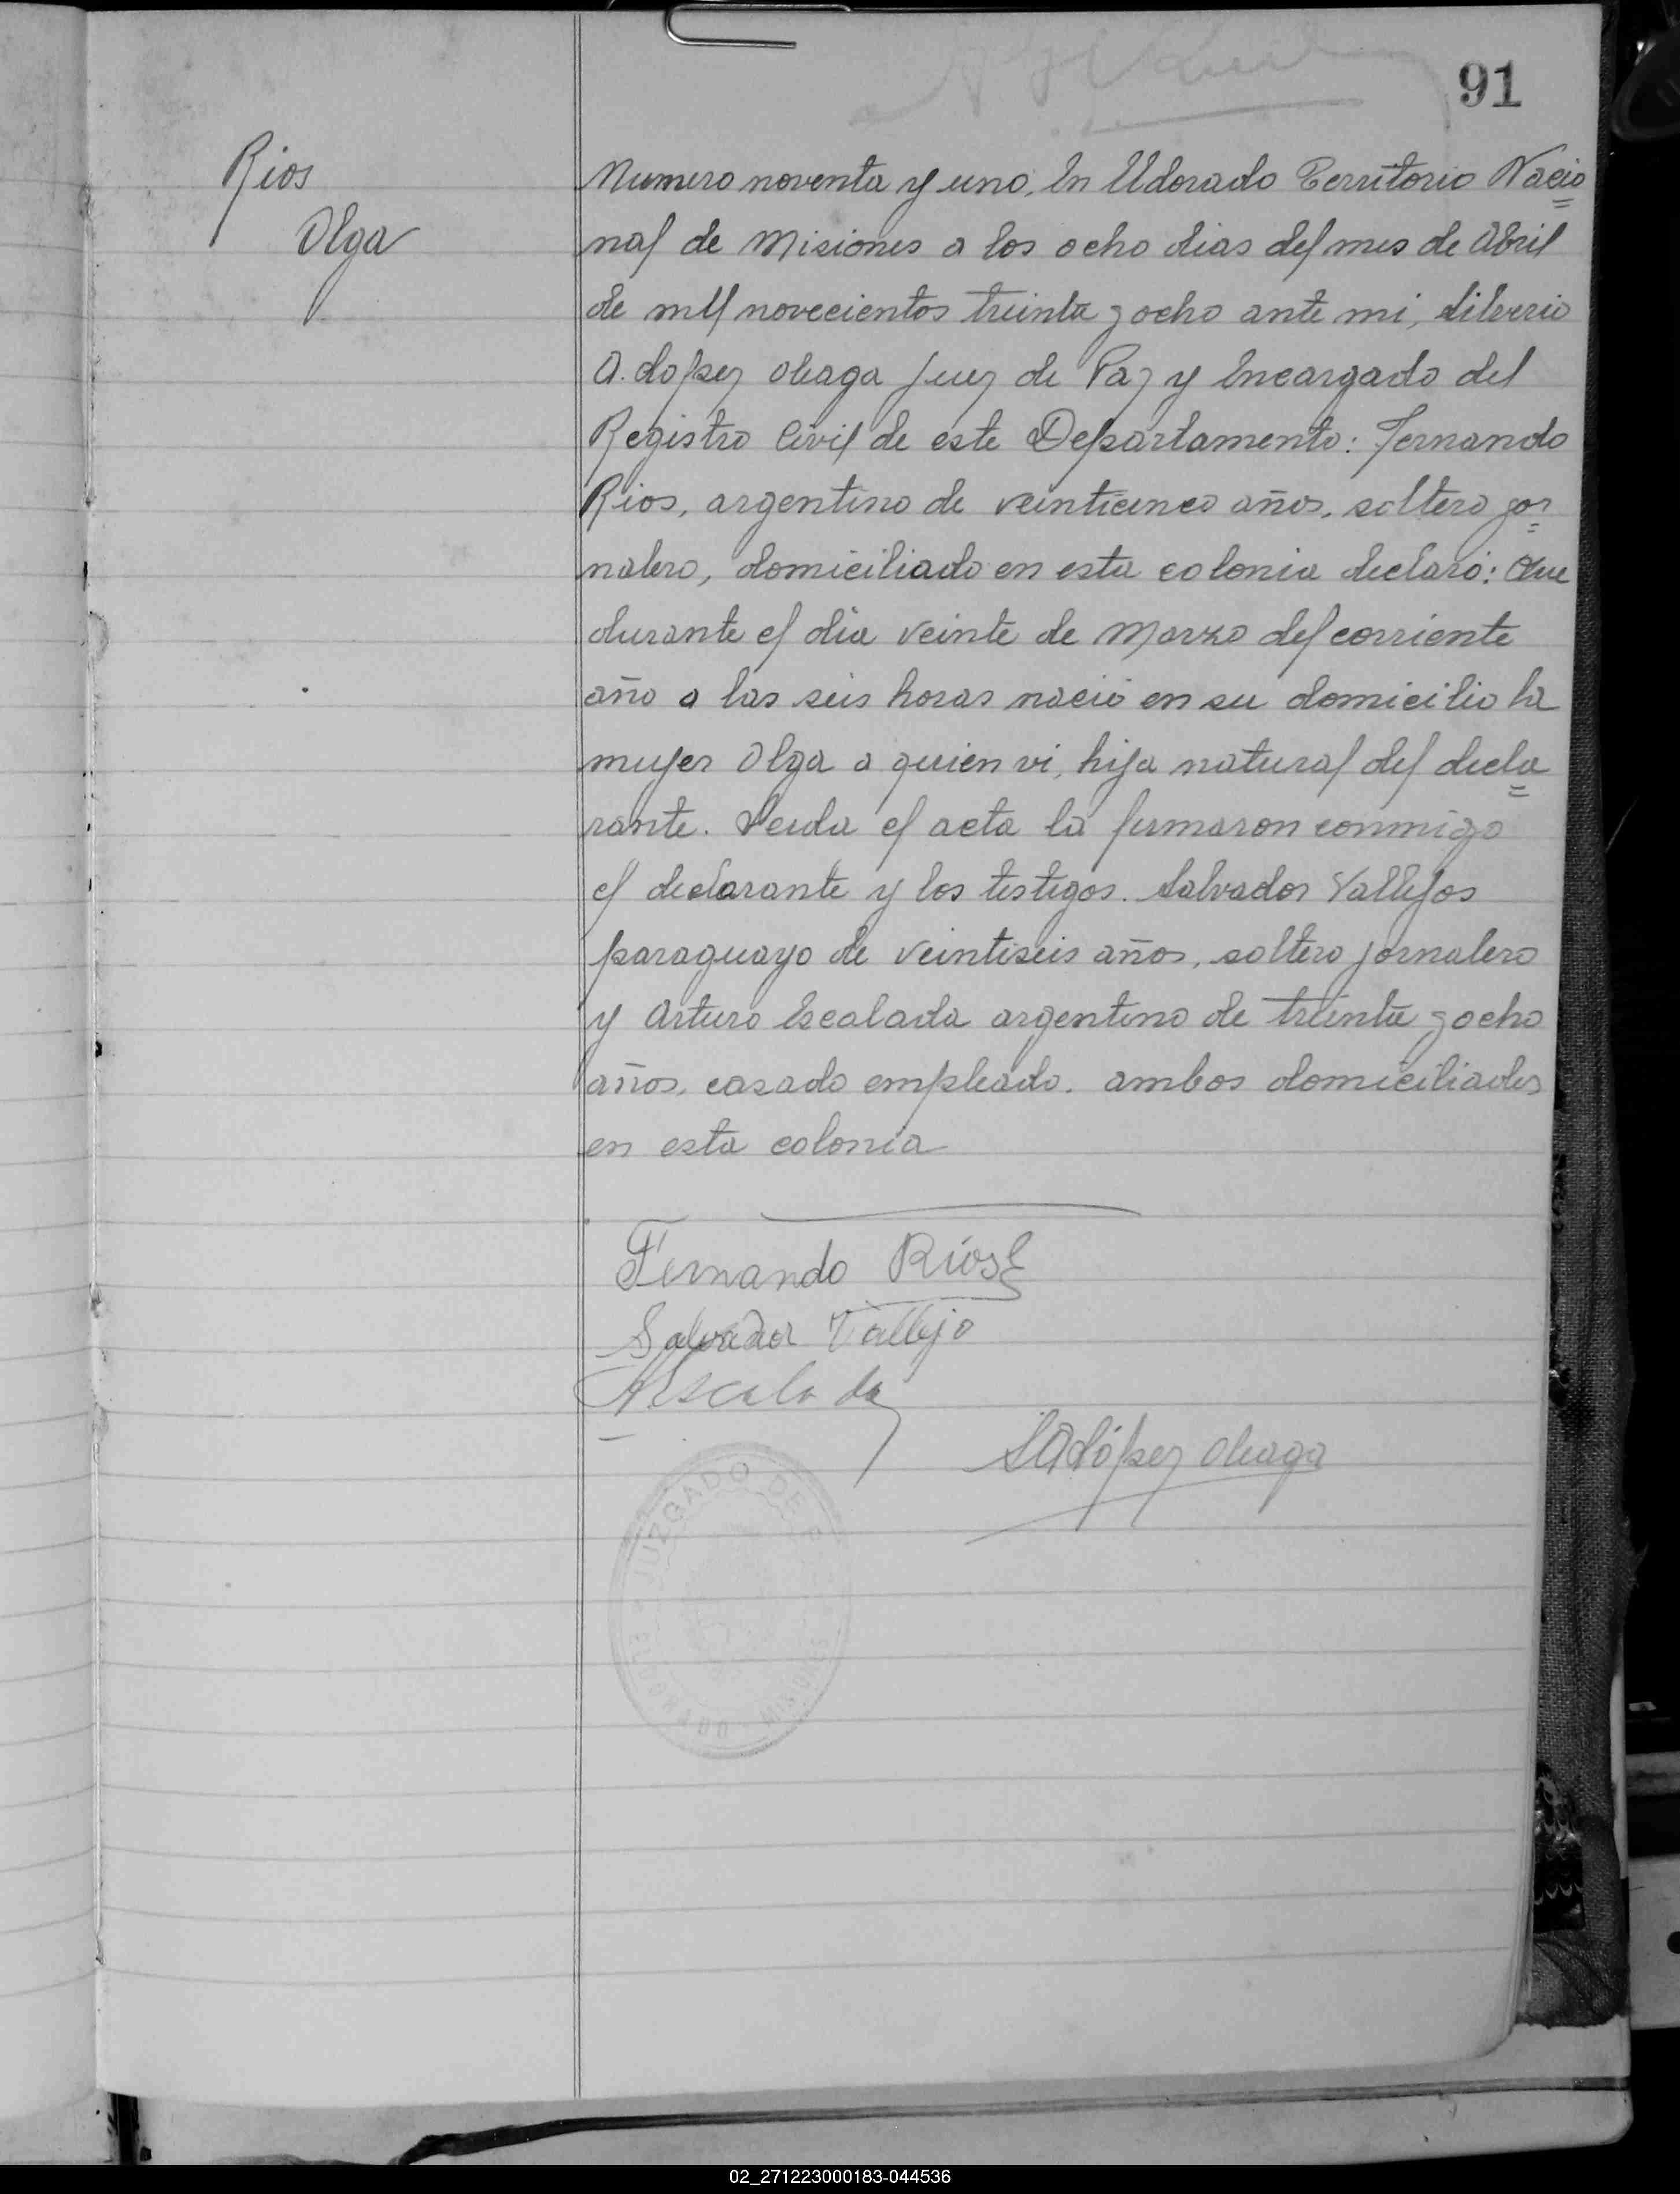 91
Rios
Olga
Numero noventa y uno. En Eldorado Territorio Nacio=
nal de Misiones a los ocho dias del mes de Abril
de mil novecientos treinta y ocho ante mi, Silverio
A. Lopez Oleaga Juez de Paz y Encargado del
Registro Civil de este Departamento: Fernando
Rios, argentino de veinticinco años, soltero jor=
nalero, domiciliado en esta colonia declaró: Que
durante el dia veinte de Marzo del corriente
año a las seis horas nació en su domicilio la
mujer Olga a quien vi, hija natural del decla=
rante. Leida el acta la firmaron conmigo
el declarante y los testigos. Salvador Vallejos
paraguayo de veintiseis años, soltero jornalero
y Arturo Escalada argentino de treinta y ocho
años, casado empleado. ambos domiciliados
en esta colonia
Fernando Rios
Salvador Vallejo
AEscalada
SALópez Oleaga
JUZGADO DE P
ELDORADO MISIONES
02_271223000183-044536